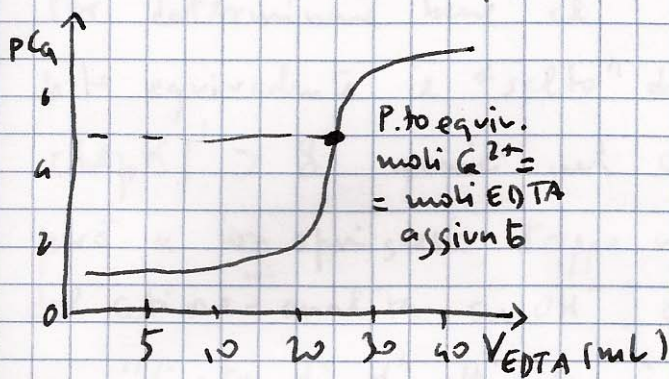 pCa
6
4
2
0
P.to equiv.
moli Ca²⁺=
= moli EDTA
aggiunto
5 10 20 30 40 V EDTA (mL)